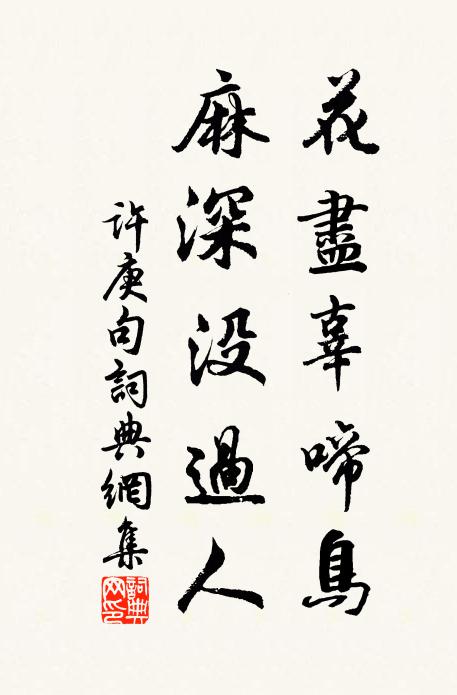 花盡辜啼鳥
麻深没過人
許庚句詞典網集
詞典网印